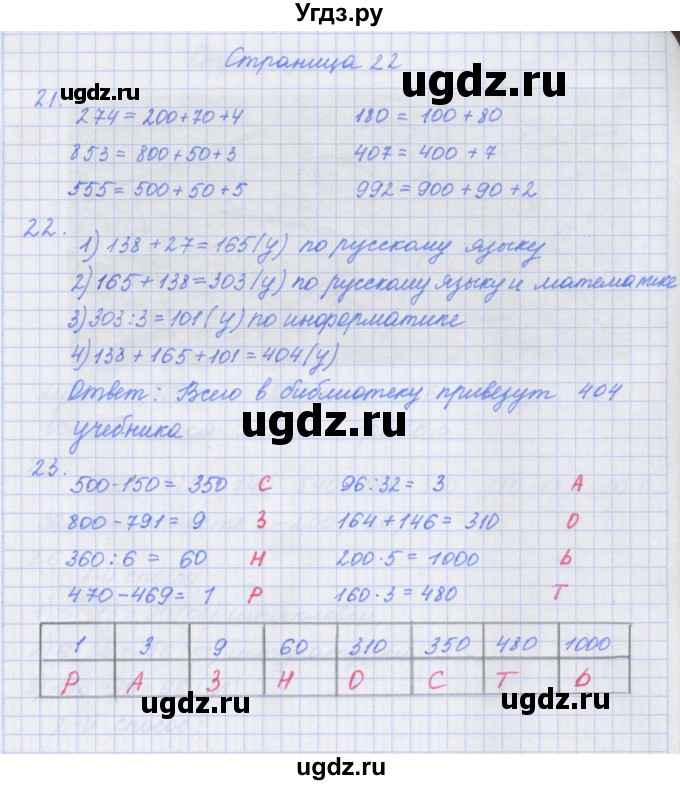 Угдз.ру
Страница 22
ugdz.ru ugdz.ru
21.
274 = 200+70+4 180 = 100+80
853 = 800+50+3 407 = 400+7
555 = 500+50+5 992 = 900+90+2
ugdz.ru ugdz.ru
22.
1) 138+27=165(у) по русскому языку
2) 165+138=303(у) по русскому языку и математике
3) 303:3=101(у) по информатике
ugdz.ru
4) 138+165+101=404(у)
Ответ: Всего в библиотеку привезут 404
учебника
ugdz.ru
23.
500-150= 350 С 96:32= 3 А
800-791= 9 З 164+146=310 О
ugdz.ru ugdz.ru
360:6= 60 Н 200·5=1000 Ь
470-469= 1 Р 160·3=480 Т
1 3 9 60 310 350 480 1000
Р А З Н О С Т Ь
ugdz.ru ugdz.ru
ugdz.ru